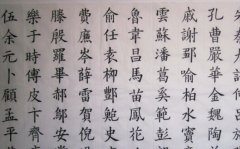 孔曹嚴華金魏陶
戚謝鄒喻柏水竇
雲蘇潘葛奚范彭
魯韋昌馬苗鳳花
俞任袁柳酆鮑史
費廉岑薛雷賀倪
滕殷羅畢郝鄔安
樂于時傅皮卞齊
伍余元卜顧孟平